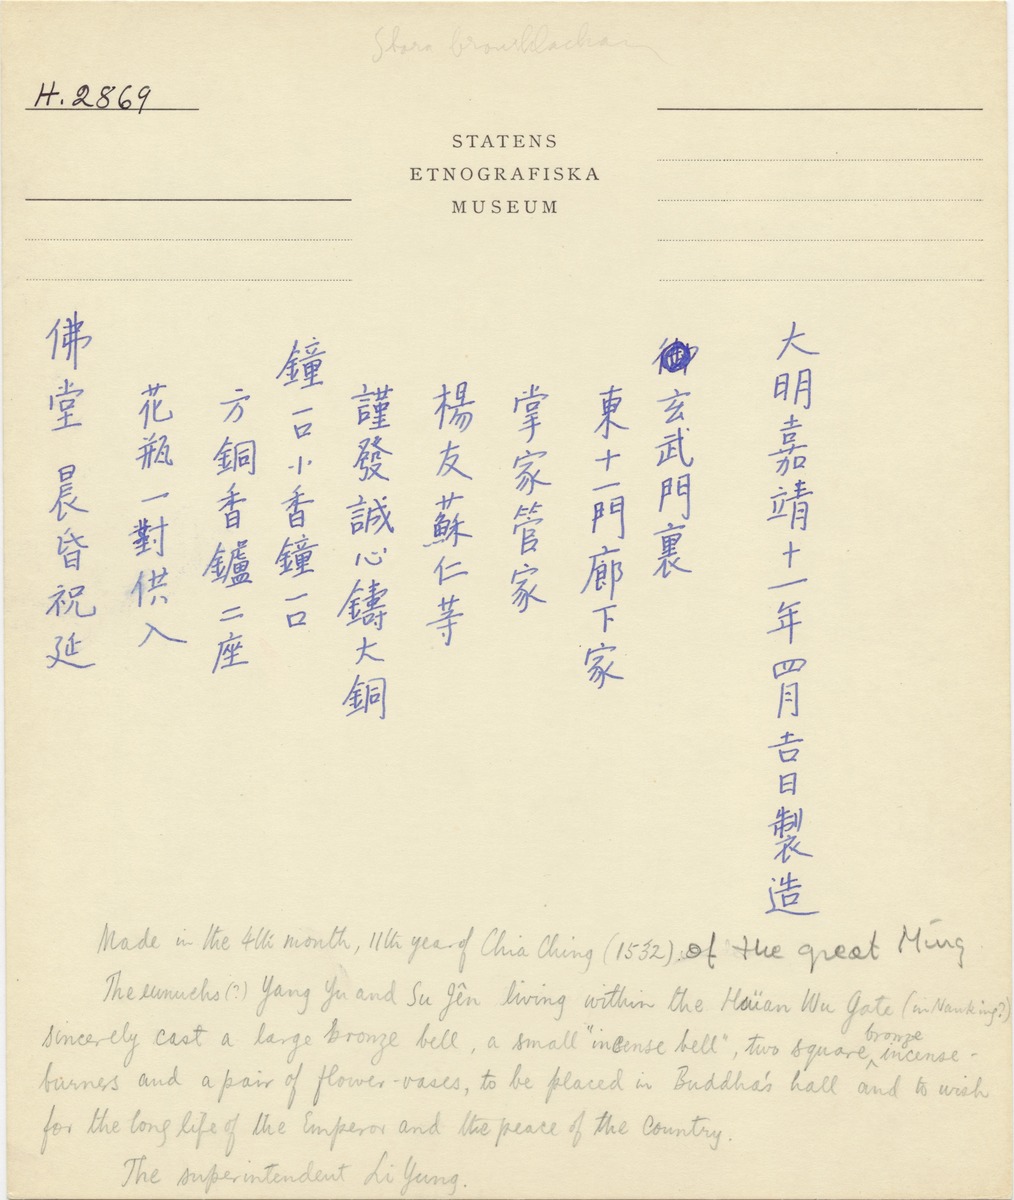 Stora bronsklockan
H.2869
STATENS
ETNOGRAFISKA
MUSEUM
大明嘉靖十一年四月吉日製造
玄武門裏
東十一門廊下家
掌家管家
楊友蘇仁等
謹發誠心鑄大銅
鐘一口小香鐘一口
方銅香鑪二座
花瓶一對供入
佛堂晨昏祝延
Made in the 4th month, 11th year of Chia Ching (1532). of the great Ming
The eunuchs (?) Yang Yu and Su Jên living within the Hsüan Wu Gate (in Nanking?)
sincerely cast a large bronze bell, a small "incense bell", two square bronze incense-
burners and a pair of flower-vases, to be placed in Buddha's hall and to wish
for the long life of the Emperor and the peace of the Country.
The superintendent Li Yung.